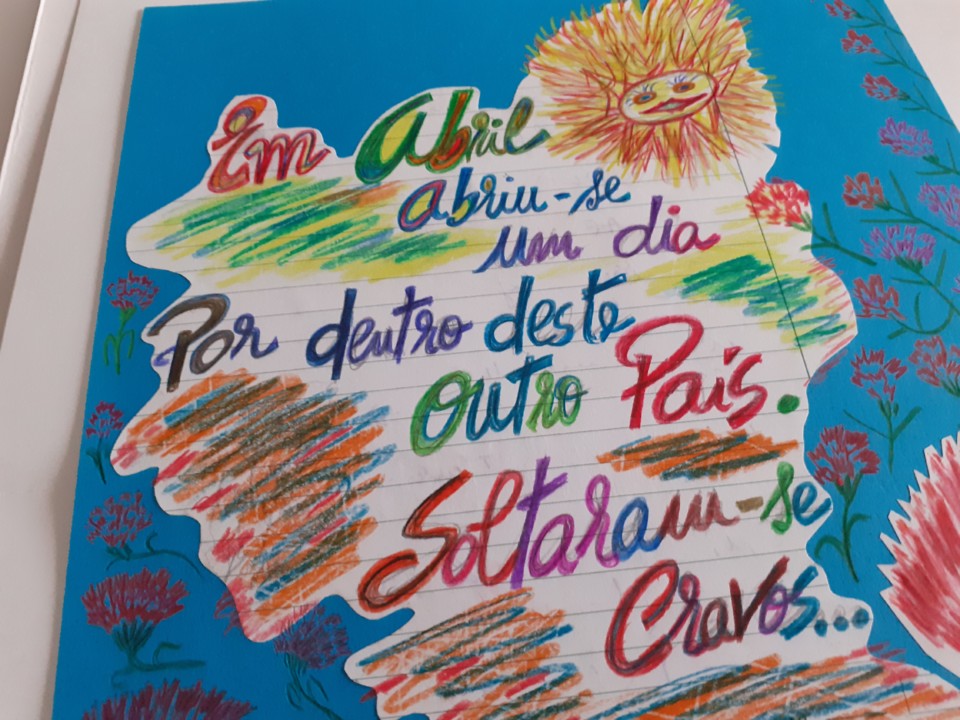 Em Abril
abriu-se
um dia
Por dentro deste
outro País.
Soltaram-se
Cravos...